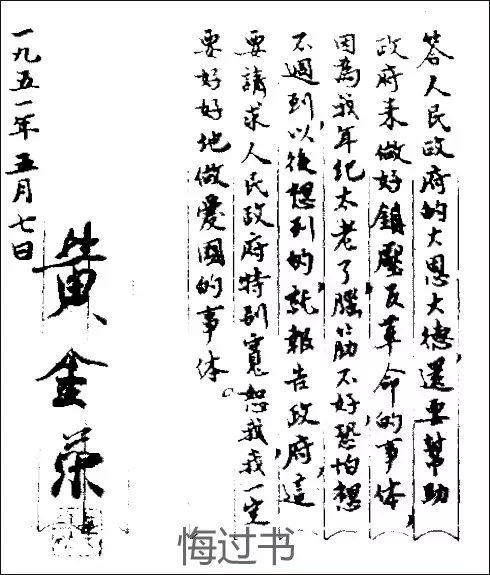 答人民政府的大恩大德,還要幫助
政府来做好鎮壓反革命的事体,
因為我年纪太老了,腦筋不好,恐怕想
不週到,以後想到的,就報告政府,這
要請求人民政府特别寬恕我,我一定
要好好地做愛國的事体。
一九五一年五月七日
黄金荣
悔过书